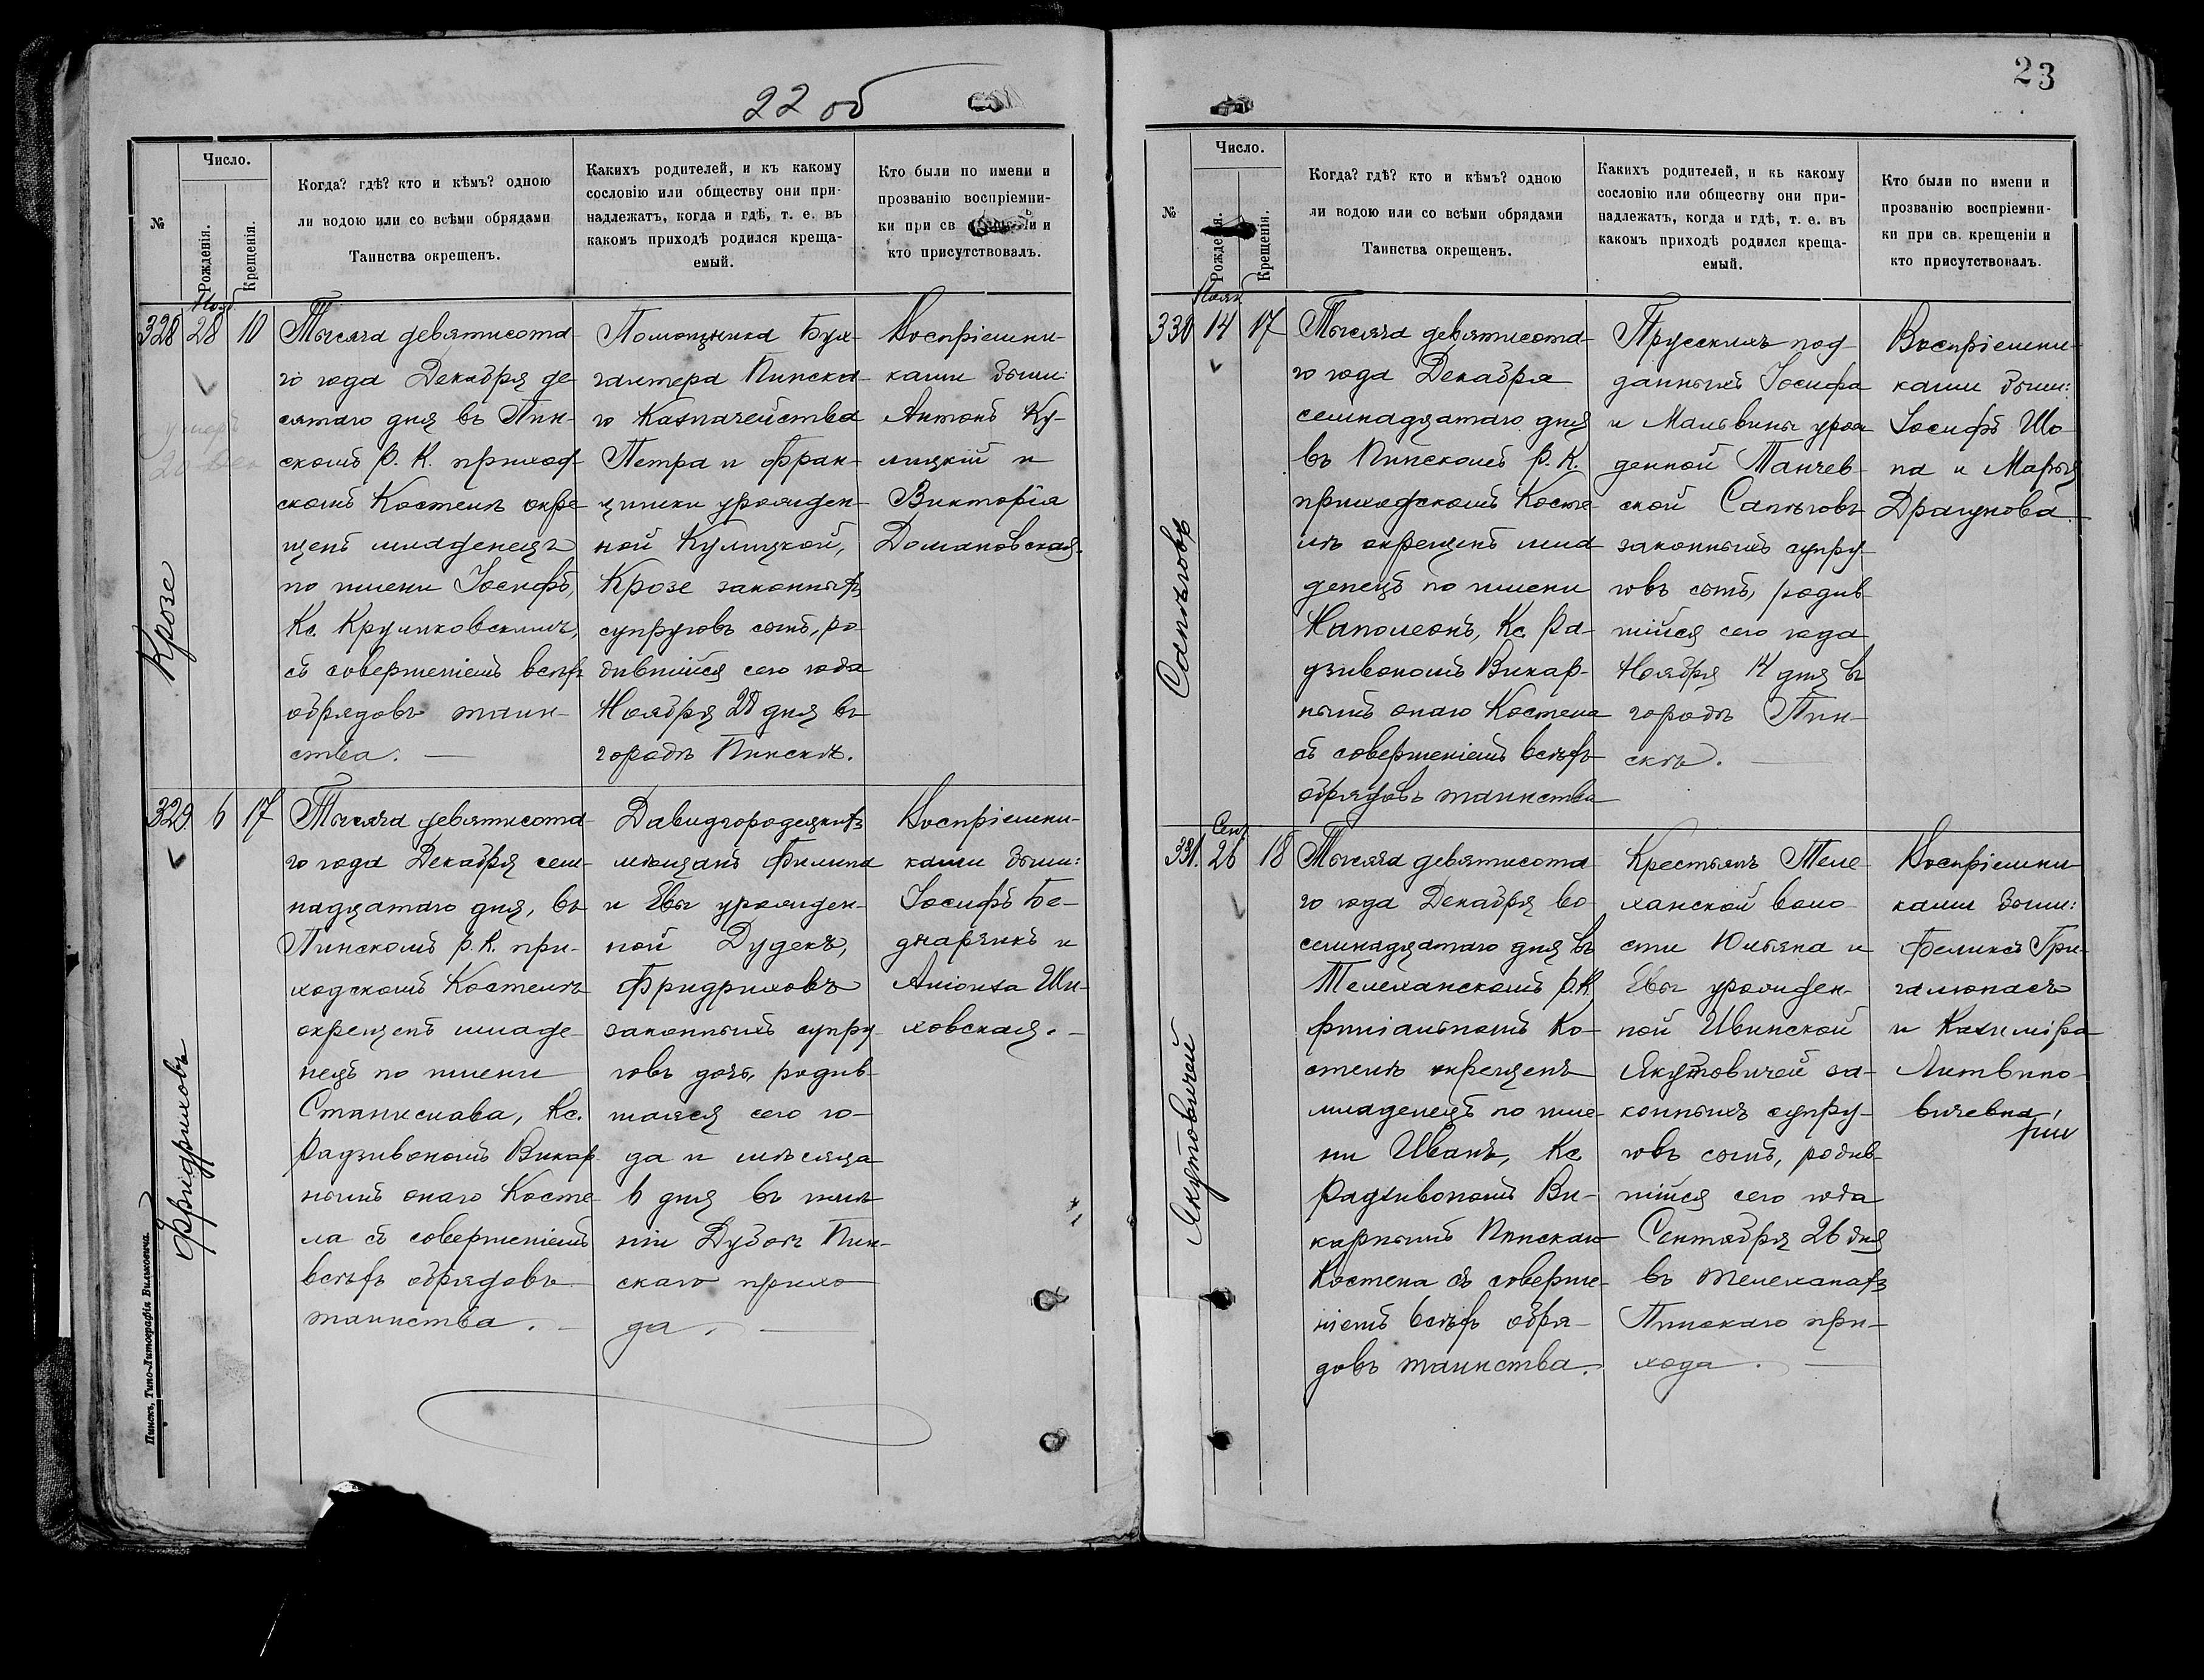 22 об
№
Число.
Рожденія.
Крещенія.
Когда? гдѣ? кто и кѣмъ? одною
ли водою или со всѣми обрядами
Таинства окрещенъ.
Какихъ родителей, и къ какому
сословію или обществу они при-
надлежатъ, когда и гдѣ, т. е. въ
какомъ приходѣ родился креща-
емый.
Кто были по имени и
прозванію воспріемни-
ки при св и
кто присутствовалъ.
328 28 10
Нояб
умеръ
Крозе
Тысяча девятисота-
го года Декабря де-
сятаго дня въ Пин-
скомъ Р. К. приход-
скомъ Костелѣ окре-
щенъ младенецъ
по имени Іосифъ,
Кс. Круликовскимъ,
съ совершеніемъ всѣхъ
обрядовъ таин-
ства. —
Помощника Бух-
галтера Пинска-
го Казначейства
Петра и Фран-
цишки урожден-
ной Кулицкой,
Крозе законныхъ
супруговъ сынъ, ро-
дившійся сего года
Ноября 28 дня въ
городѣ Пинскѣ.
Воспріемни-
ками были:
Антонъ Ку-
лицкій и
Викторія
Домановская.
329. 6 17
Фридриховъ
Тысяча девятисота-
го года Декабря сем-
надцатаго дня, въ
Пинскомъ Р. К. при-
ходскомъ Костелѣ
окрещенъ младе-
нецъ по имени
Станислава, Кс.
Радзивономъ Викар-
нымъ онаго Косте-
ла съ совершеніемъ
всѣхъ обрядовъ
таинства. —
Давидгородецкихъ
мѣщанъ Филипа
и Евы урожден-
ной Дудекъ,
Фридриховъ
законныхъ супру-
говъ дочь, родив-
шаяся сего го-
да и мѣсяца
6 дня въ имѣ-
ніи Дубоѣ Пин-
скаго прихо-
да. —
Воспріемни-
ками были:
Іосифъ Бе-
днарзикъ и
Ши-
ховская. —
Пинскъ, Типо-Литографія Вильковича.
23
№
Число.
Рожденія.
Крещенія.
Когда? гдѣ? кто и кѣмъ? одною
ли водою или со всѣми обрядами
Таинства окрещенъ.
Какихъ родителей, и къ какому
сословію или обществу они при-
надлежатъ, когда и гдѣ, т. е. въ
какомъ приходѣ родился креща-
емый.
Кто были по имени и
прозванію воспріемни-
ки при св. крещеніи и
кто присутствовалъ.
330 14 17
Сапѣговъ
Тысяча девятисота-
го года Декабря
семнадцатаго дня
въ Пинскомъ Р. К.
приходскомъ Косте-
лѣ окрещенъ мла-
денецъ по имени
Наполеонъ, Кс. Ра-
дзивономъ Викар-
нымъ онаго Костела
съ совершеніемъ всѣхъ
обрядовъ таинства
Прусскихъ под-
данныхъ Іосифа
и Мальвины урож-
денной Танчев-
ской Сапѣговъ
законныхъ супру-
говъ сынъ, родив-
шійся сего года
Ноября 14 дня въ
городѣ Пин-
скѣ. —
Воспріемни-
ками были:
Іосифъ Шо-
па и Марья
Драгунова.
331. 26 18
Сен.
Якутовичей
Тысяча девятисота-
го года Декабря во-
семнадцатаго дня въ
Телеханскомъ Р.К.
филіальномъ Ко-
стелѣ окрещенъ
младенецъ по име-
ни Иванъ, Кс.
Радзивономъ Ви-
карнымъ Пинскаго
Костела съ соверше-
ніемъ всѣхъ обря-
довъ таинства.
Крестьянъ Теле-
ханской воло-
сти Юльяна и
Евы урожден-
ной Ивинской
Якутовичей за-
конныхъ супру-
говъ сынъ, родив-
шійся сего года
Сентября 26 дня
въ Телеханахъ
Пинскаго при-
хода. —
Воспріемни-
ками были:
Феликсъ Гри-
галюнасъ
и Казиміра
Литвино-
вичевна,